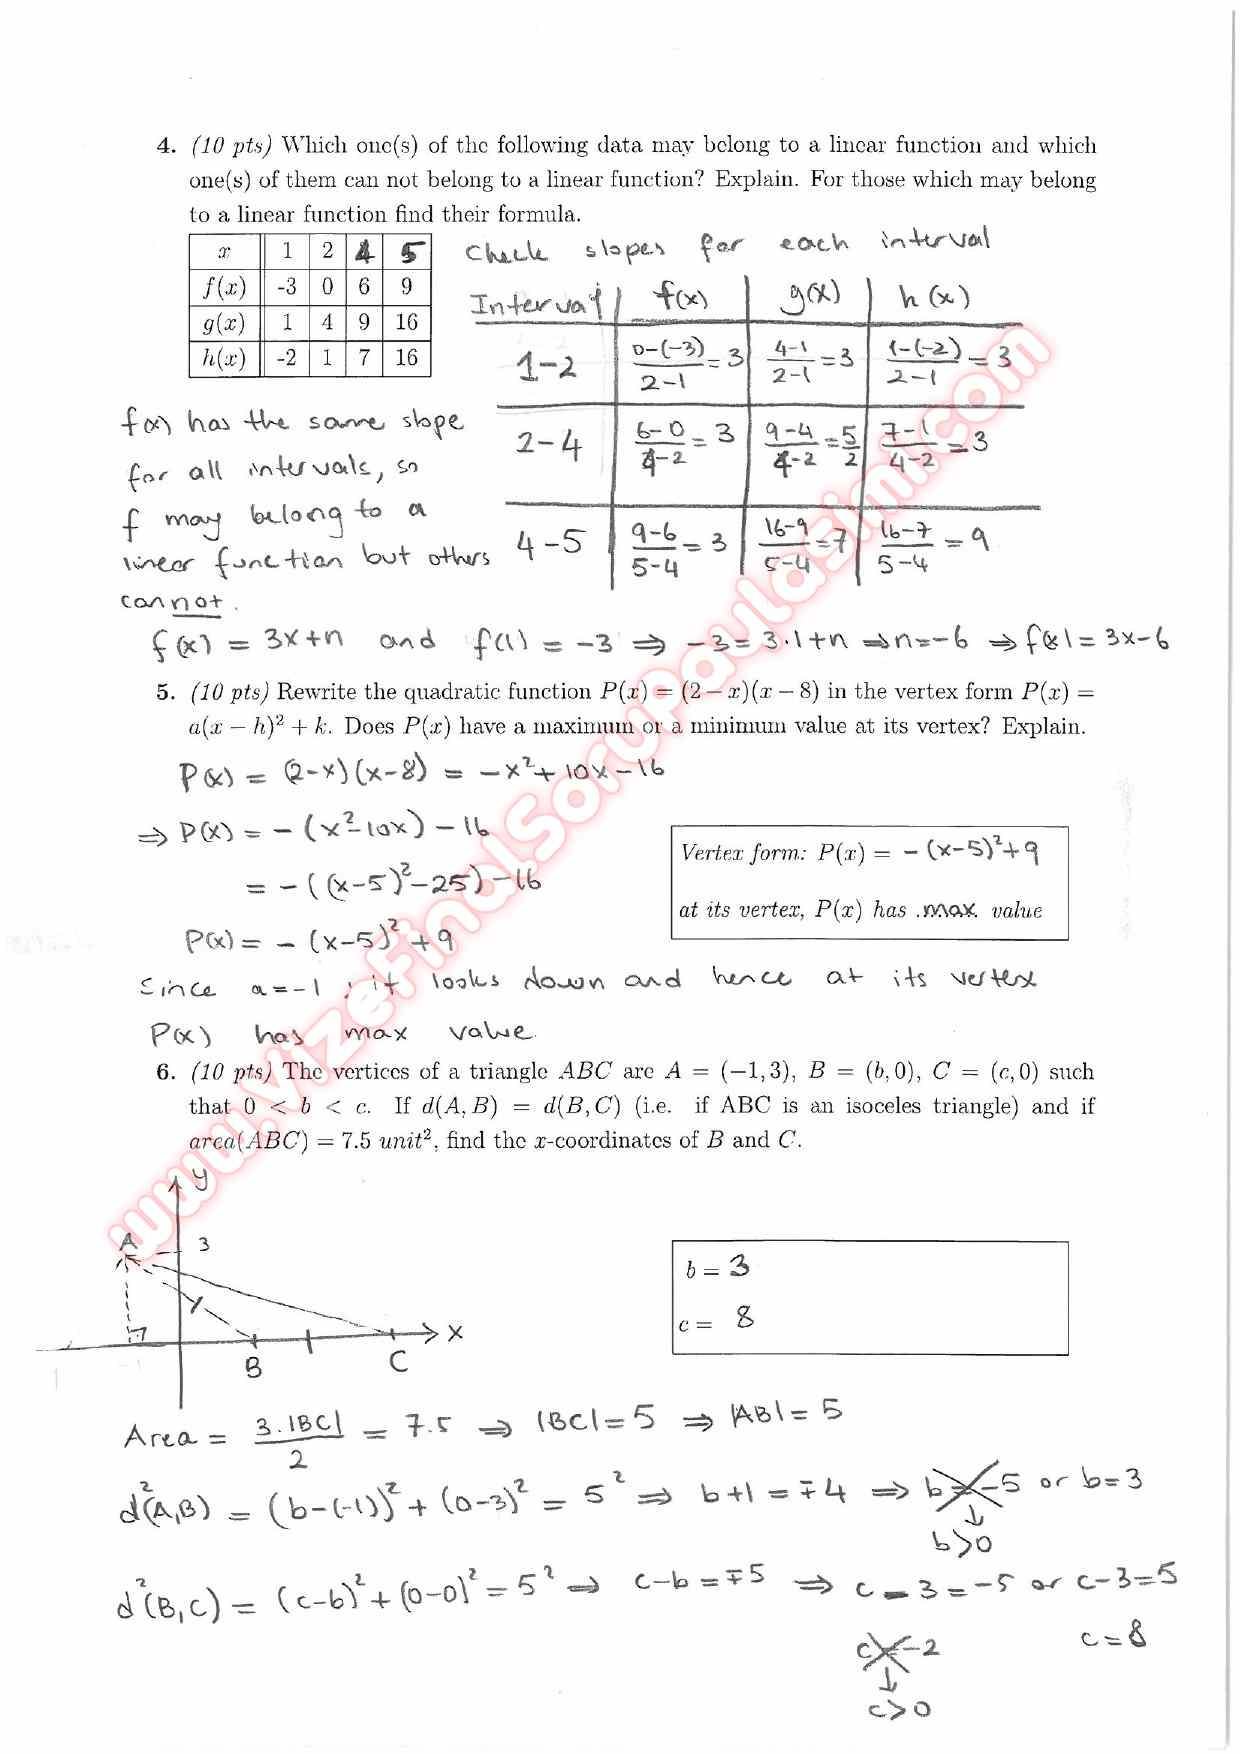 4. (10 pts) Which one(s) of the following data may belong to a linear function and which
one(s) of them can not belong to a linear function? Explain. For those which may belong
to a linear function find their formula.
x 1 2 4 5
f(x) -3 0 6 9
g(x) 1 4 9 16
h(x) -2 1 7 16
Check slopes for each interval
Interval f(x) g(x) h(x)
1-2 0-(-3)/2-1 = 3 4-1/2-1 = 3 1-(-2)/2-1 = 3
2-4 6-0/4-2 = 3 9-4/4-2 = 5/2 7-1/4-2 = 3
4-5 9-6/5-4 = 3 16-9/5-4 = 7 16-7/5-4 = 9
f(x) has the same slope
for all intervals, so
f may belong to a
linear function but others
can not.
f(x) = 3x+n and f(1) = -3 ⇒ -3 = 3.1+n ⇒ n=-6 ⇒ f(x) = 3x-6
5. (10 pts) Rewrite the quadratic function P(x) = (2 − x)(x − 8) in the vertex form P(x) =
a(x − h)² + k. Does P(x) have a maximum or a minimum value at its vertex? Explain.
P(x) = (2-x)(x-8) = -x²+10x-16
⇒ P(x) = -(x²-10x)-16
= -((x-5)²-25)-16
P(x) = -(x-5)²+9
Vertex form: P(x) = -(x-5)²+9
at its vertex, P(x) has .max. value
Since a=-1, it looks down and hence at its vertex
P(x) has max value.
6. (10 pts) The vertices of a triangle ABC are A = (−1, 3), B = (b, 0), C = (c, 0) such
that 0 < b < c. If d(A, B) = d(B, C) (i.e. if ABC is an isoceles triangle) and if
area(ABC) = 7.5 unit², find the x-coordinates of B and C.
y
A 3
x
B C
b = 3
c = 8
Area = 3.|BC|/2 = 7.5 ⇒ |BC|=5 ⇒ |AB|=5
d²(A,B) = (b-(-1))²+(0-3)² = 5² ⇒ b+1 = ∓4 ⇒ b=-5 or b=3
b>0
d²(B,C) = (c-b)²+(0-0)² = 5² ⇒ c-b = ∓5 ⇒ c-3=-5 or c-3=5
c=-2 c=8
c>0
www.VizeFinalSoruPaylasimi.com